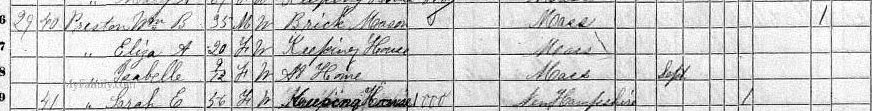 6 29 40 Preston Wm B 35 M W Brick Mason Mass 1
7 " Eliza A 20 F W Keeping House Mass
8 " Isabelle 9/12 F W At Home Mass Sept
9 41 " Sarah E 56 F W Keeping House 1000 New Hampshire 1